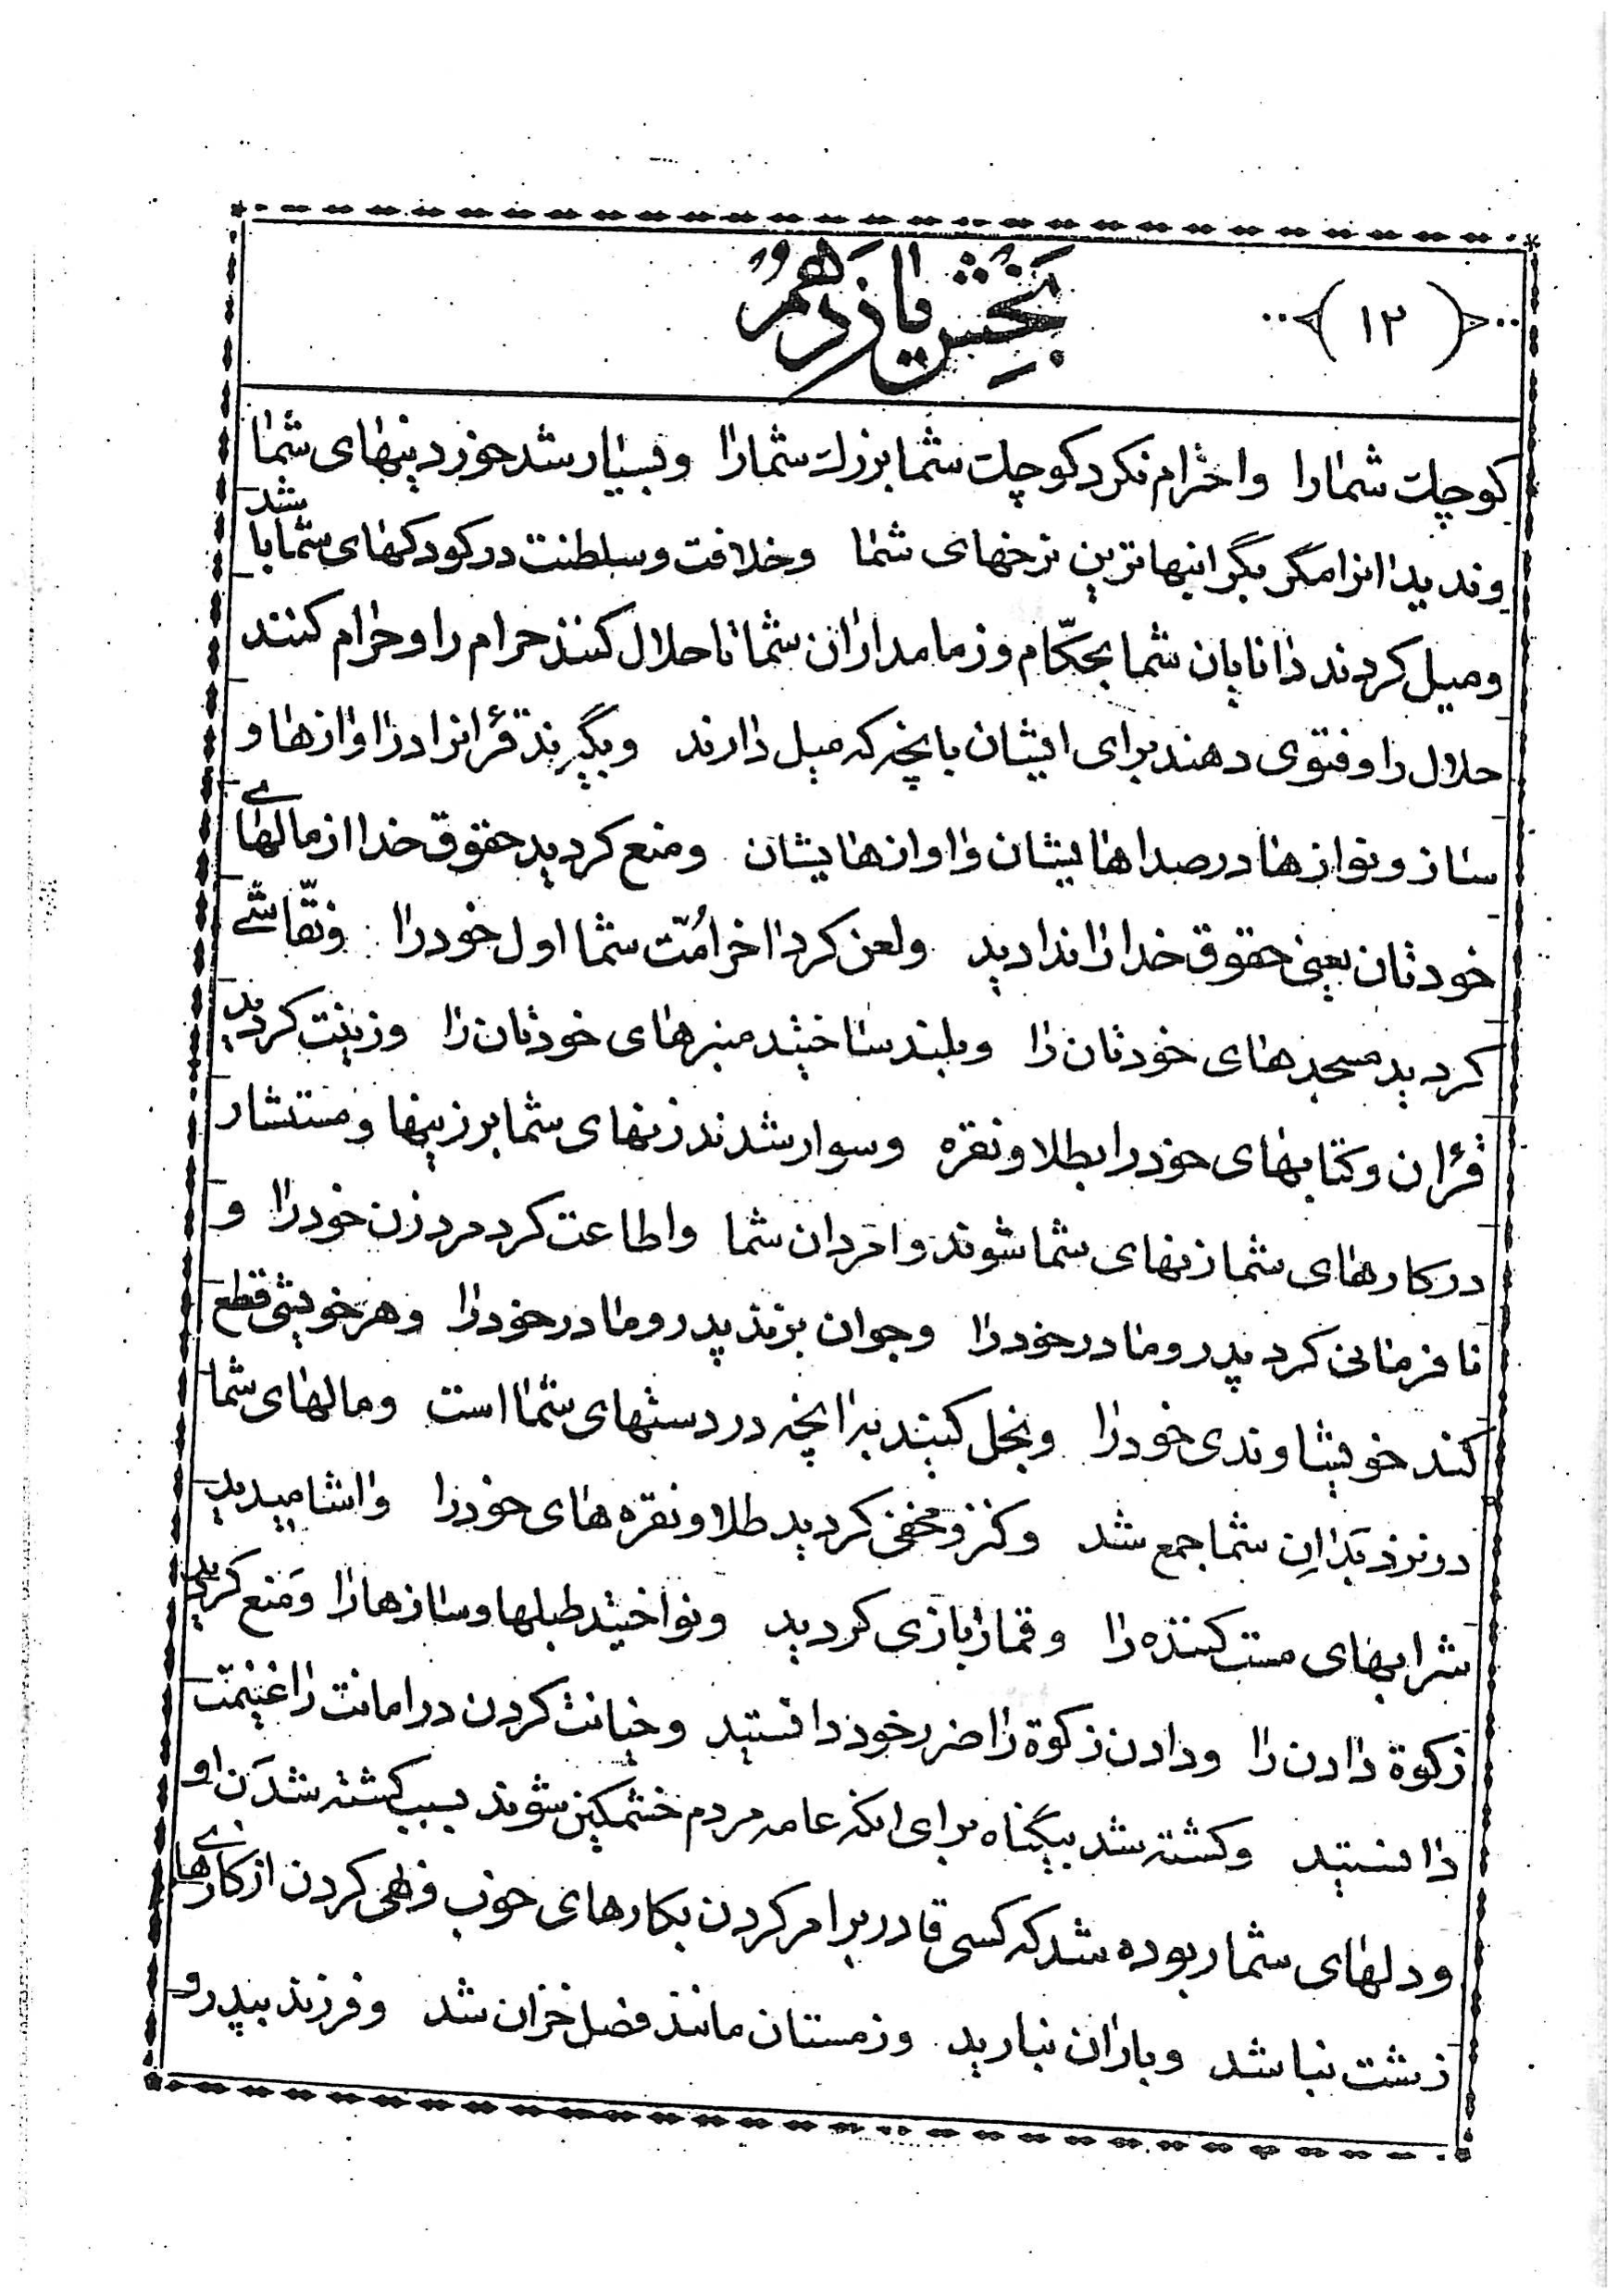 (۱۲)
بخش یازدهم
کوچک شما را و احترام نکرد کوچک شما بزرگ شما را و بسیار شد خوردینهای شما
و ندید انرا مگر بگرانبهاترین نرخهای شما و خلافت و سلطنت در کودکهای شما با شد
و میل کردند دانایان شما بحکّام و زمامداران شما تا حلال کنند حرام را و حرام کنند
حلال را و فتوی دهند برای ایشان بانچه که میل دارند و بگیرند قرآنرا در اوازها و
ساز و نوازها در صداهایشان و اوازهایشان و منع کردید حقوق خدا از مالهای
خودتان یعنی حقوق خدا را ندادید و لعن کرد اخر امّت شما اول خود را و نقّاشی
کردید مسجدهای خودتان را و بلند ساختید منبرهای خودتان را و زینت کردید
قرآن و کتابهای خود را بطلا و نقره و سوار شدند زنهای شما بر زینها و مستشار
در کارهای شما زنهای شما شوند و امردان شما و اطاعت کرد مرد زن خود را و
نافرمانی کرد پدر و مادر خود را و جوان بزند پدر و مادر خود را و هر خویشی قطع
کند خویشاوندی خود را و بخل کنید به انچه در دستهای شما است و مالهای شما
در نزد بَدانِ شما جمع شد و کنز و مخفی کردید طلا و نقره های خود را و اشامیدید
شرابهای مست کننده را و قمار بازی کردید و نواختید طبلها و سازها را وَ منع کردید
زکوة دادن را و دادن زکوة را ضرر خود دانستید و خیانت کردن در امانت را غنیمت
دانستید و کشته شد بیگناه برای انکه عامه مردم خشمگین شوند بسبب کشته شدَن او
و دلهای شما ربوده شد که کسی قادر بر امر کردن بکارهای خوب و نهی کردن از کارهای
زشت نباشد و باران نبارید و زمستان مانند فصل خزان شد و فرزند بپدر و